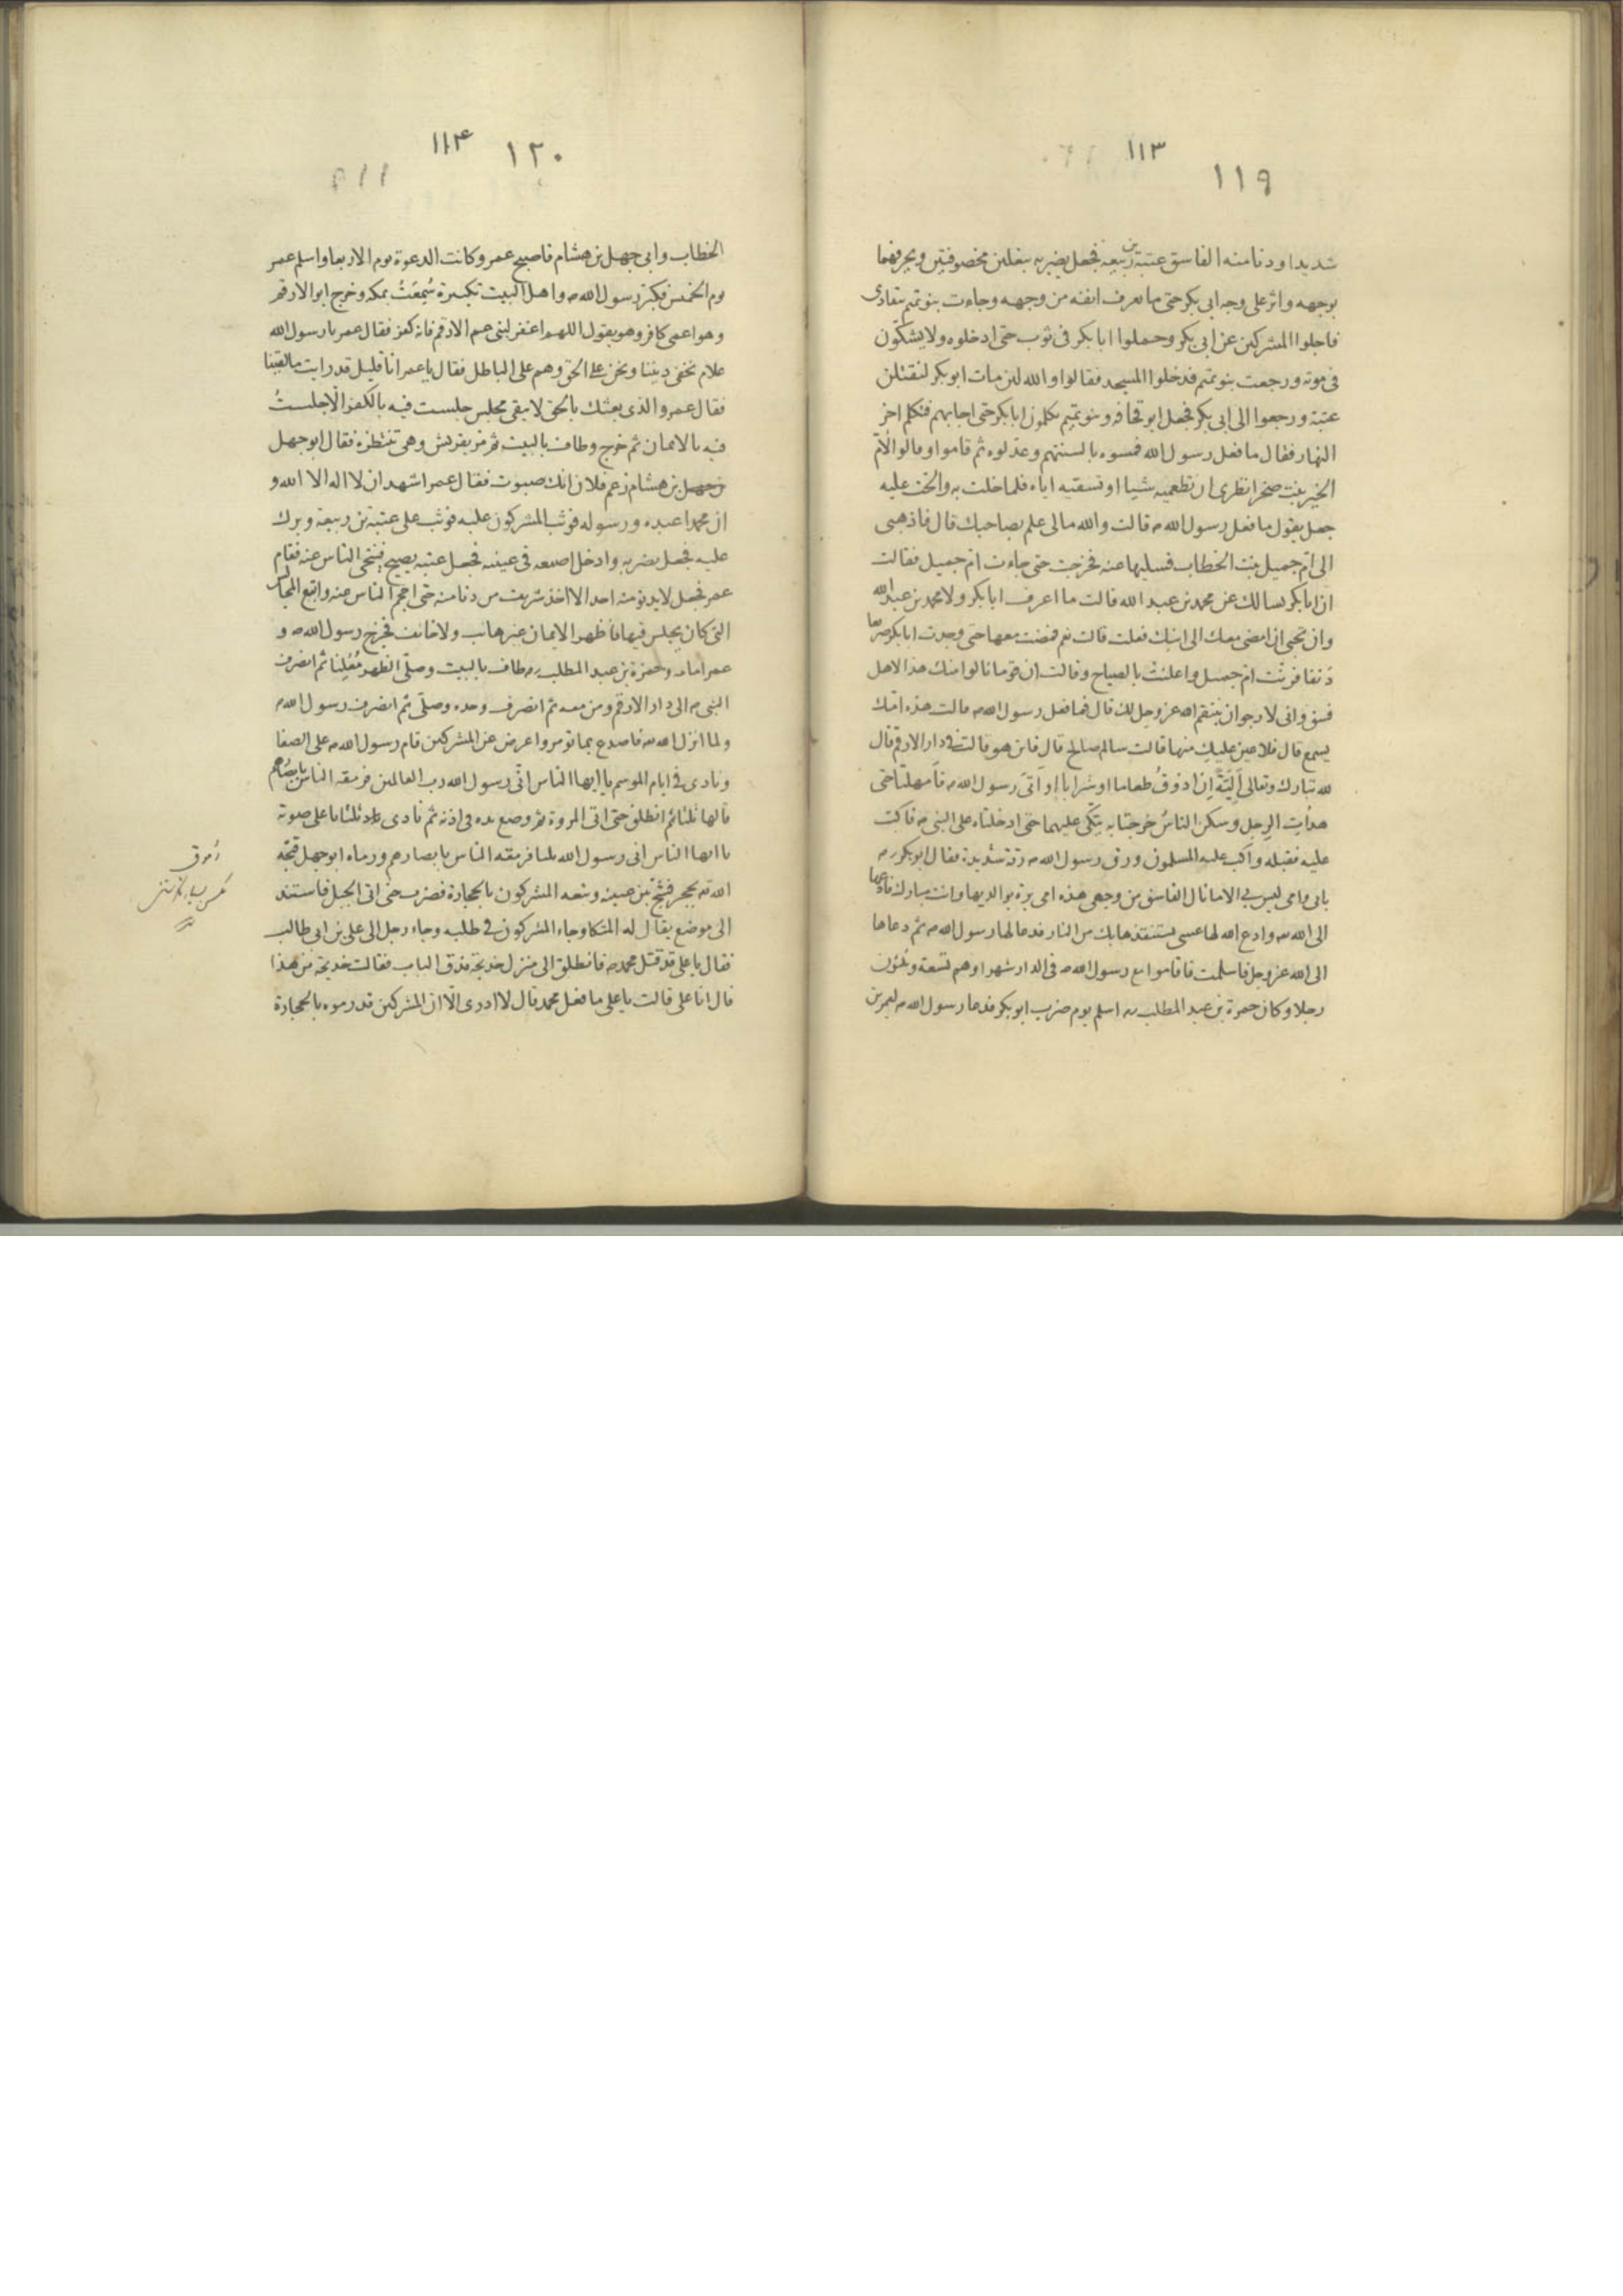 ١١٣
١١٩
شديدا ودنا منه الفاسق عتبة بن ربيعة فجعل يضربه بنعلين مخصوفتين ويحرفهما
بوجهه واثر على وجه ابى بكر حتى ما يعرف انفه من وجهه وجاءت بنو تيم يتعادى
فاجلوا المشركين عن ابى بكر وحملوا ابا بكر فى ثوب حتى ادخلوه ولا يشكّون
فى موته ورجعت بنو تيم فدخلوا المسجد فقالوا والله لئن مات ابو بكر لنقتلن
عتبة ورجعوا الى ابى بكر فجعل ابو قحافه وبنو تيم يكلمون ابا بكر حتى اجابهم فتكلم اخر
النهار فقال ما فعل رسول الله فمسوه بالسنتهم وعذلوه ثم قاموا وقالوا لأمّ
الخير بنت صخر انظرى ان تطعميه شيا او تسقيه اياه فلما خلت به والحت عليه
جعل يقول ما فعل رسول الله ص قالت والله مالى علم بصاحبك قال فاذهبى
الى ام جميل بنت الخطاب فسليها عنه فخرجت حتى جاءت ام جميل فقالت
ان ابا بكر يسالك عن محمد بن عبد الله قالت ما اعرف ابا بكر ولا محمد بن عبد الله
وان تحبى ان امضى معك الى ابنك فعلت قالت نعم فمضت معها حتى وجدت ابا بكر صريعا
دَنفا فرنّت ام جميل واعلنت بالصياح وقالت ان قوما نالوا منك هذا لاهل
فسق وانى لارجو ان ينتقم الله عز وجل لك قال فما فعل رسول الله ص قالت هذه امّك
يسمع قال فلا عين عليكِ منها قالت سالم صالح قال فاين هو قالت فى دار الارقم قال
لله تبارك وتعالى أَلِيّةً اِن اذوقُ طعاما او شرابا او اتىَ رسول الله ص فامهلتا حتى
هدأت الرِجل وسكن الناسُ خرجتا به يتكى عليهما حتى ادخلتاه على النبى ص فاكبّ
عليه فقبله واكب عليه المسلمون ورق رسول الله ص رقة شديدة فقال ابو بكر رض
بابى وامى ليس بى الا ما نال الفاسق من وجهى هذه امى برة بوالديها وانت مبارك فادعها
الى الله تعه وادع الله لها عسى يستنقذها بك من النار فدعا لها رسول الله ص ثم دعاها
الى الله عز وجل فاسلمت فاقاموا مع رسول الله ص فى الدار شهرا وهم تسعة وثلثون
رجلا وكان حمزة بن عبد المطلب رض اسلم يوم ضرب ابو بكر فدعا رسول الله ص لعمر بن
١١۴
١٢٠
الخطاب وابى جهل بن هشام فاصبح عمر وكانت الدعوة يوم الاربعا واسلم عمر
يوم الخميس فكبّر رسول الله ص واهل البيت تكبيرة سُمِعَتْ بمكه وخرج ابو الارقم
وهو اعمى كافر وهو يقول اللهم اغفر لبنى عبيد الارقم فانه كفر فقال عمر يا رسول الله
علام نخفى ديننا ونحن على الحق وهم على الباطل فقال يا عمر انا قليل قد رايت ما لقينا
فقال عمر والذى بعثك بالحق لا يبقى مجلس جلست فيه بالكفر الّا جلستُ
فيه بالايمان ثم خرج وطاف بالبيت ثم مر بقريش وهى تنتظره فقال ابو جهل
بن هشام زعم فلان انك صبوت فقال عمر اشهد ان لا اله الا الله و
ان محمدا عبده ورسوله فوثب المشركون عليه فوثب على عتبة بن ربيعة وبرك
عليه فجعل يضربه وادخل اصبعه فى عينيه فجعل عتبه يصيح فتنحى الناس عنه فقام
عمر فجعل لا يدنو منه احد الا اخذ شريف من دنا منه حتى احجم الناس عنه واتبع المجالس
التى كان يجلس فيها فاظهر الايمان غير هائب ولا خائف فخرج رسول الله ص و
عمر امامه وحمزة بن عبد المطلب رض وطاف بالبيت وصلى الظهر مُعْلِنا ثم انصرف
النبى ص الى دار الارقم ومن معه ثم انصرف وحده وصلّى ثم انصرف رسول الله ص
ولما انزل الله تعه فاصدع بما تؤمر واعرض عن المشركين قام رسول الله ص على الصفا
ونادى فى ايام الموسم يا ايها الناس انّى رسول الله رب العالمين فرمقه الناس بابصارهم
قالها ثلثا ثم انطلق حتى اتى المروة ثم وضع يده فى اذنه ثم نادى ثلثا باعلى صوته
يا ايها الناس انى رسول الله ثلثا فرمقه الناس بابصارهم ورماه ابو جهل قبّحه
الله تعه بحجر فشج بين عينيه وتبعه المشركون بالحجارة فضرب حتى اتى الجبل فاستند
الى موضع يقال له المتكا وجاء المشركون فى طلبه وجاء رجل الى على بن ابى طالب
فقال يا على قد قتل محمد ص فانطلق الى منزل خديجة فدق الباب فقالت خديجة من هذا
قال انا على قالت يا على ما فعل محمد قال لا ادرى الّا ان المشركين قد رموه بالحجارة